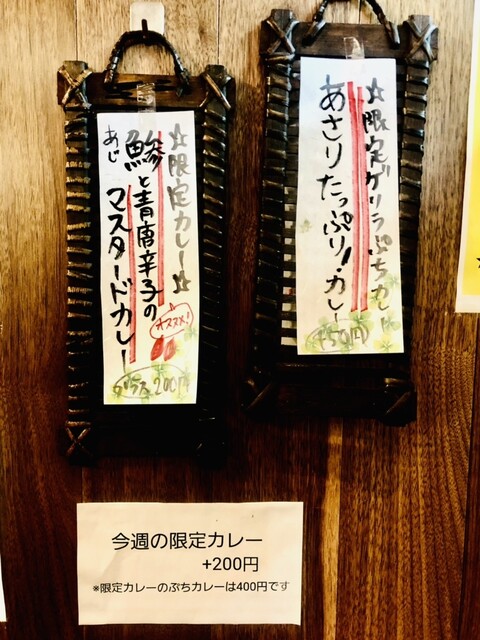 ☆限定ゲリラぷちカレー
あさりたっぷり!カレー
+50円
☆限定カレー☆
オススメ!
あじ
鯵と青唐辛子の
マスタードカレー
プラス200円
今週の限定カレー
+200円
※限定カレーのぷちカレーは400円です